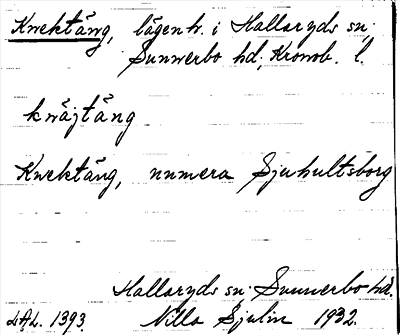 Knektäng, lägenh. i Hallaryds sn;
Sunnerbo hd; Kronob. l.
knäjtäng
Knektäng, numera Sjuhultsborg
Hallaryds sn; Sunnerbo hd.
L.A.L. 1393. Nills Sjulin 1932.